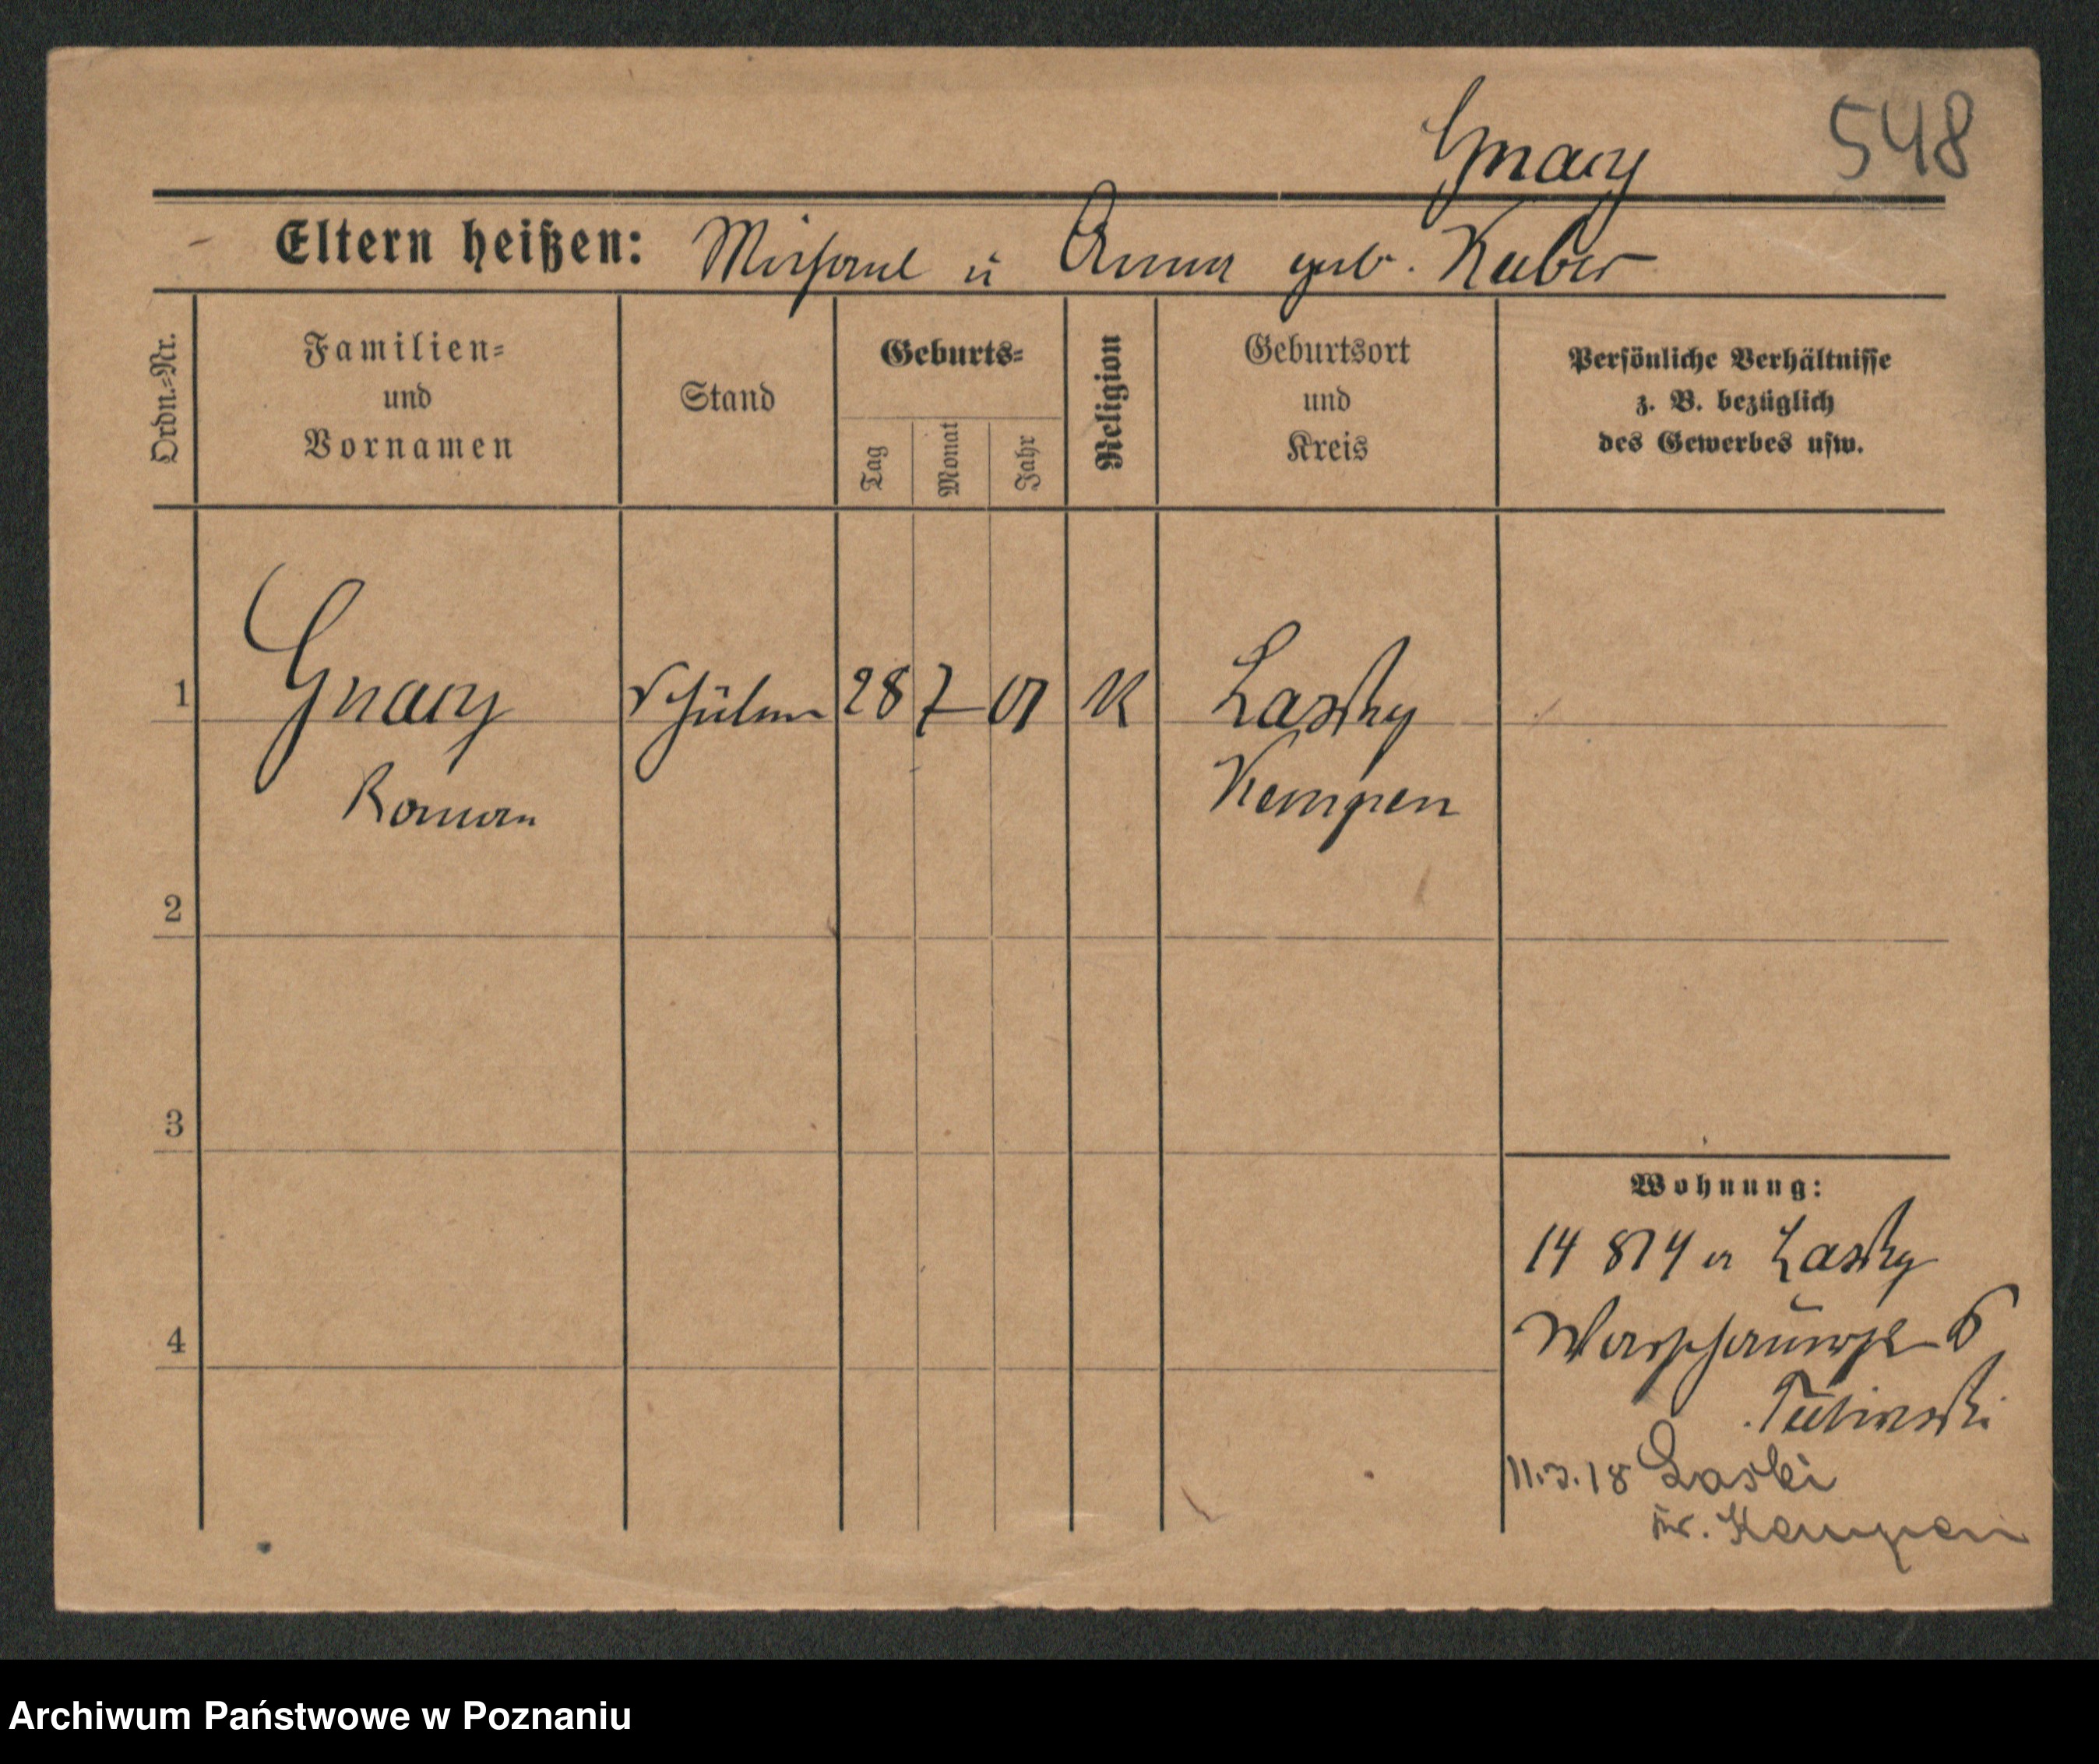 Gnacy
548
Eltern heißen: Michael u Anna geb. Kuber
Ordn.=Nr.
Familien=
und
Vornamen
Stand
Geburts=
Tag
Monat
Jahr
Religion
Geburtsort
und
Kreis
Persönliche Verhältnisse
z. B. bezüglich
des Gewerbes usw.
1 Gnacy Schüler 28 7 01 K Lasky
Roman Kempen
2
3
4
Wohnung:
14 8 14 a Lasky
6
11.3.18 Laski
Kr. Kempen
Archiwum Państwowe w Poznaniu